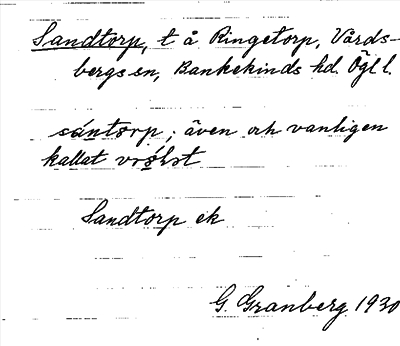 Sandtorp, t å Ringetorp, Vårds-
bergs sn, Bankekinds hd. Ögl l.
sántorp; även och vanligen
kallat
Sandtorp ek
G. Granberg 1930